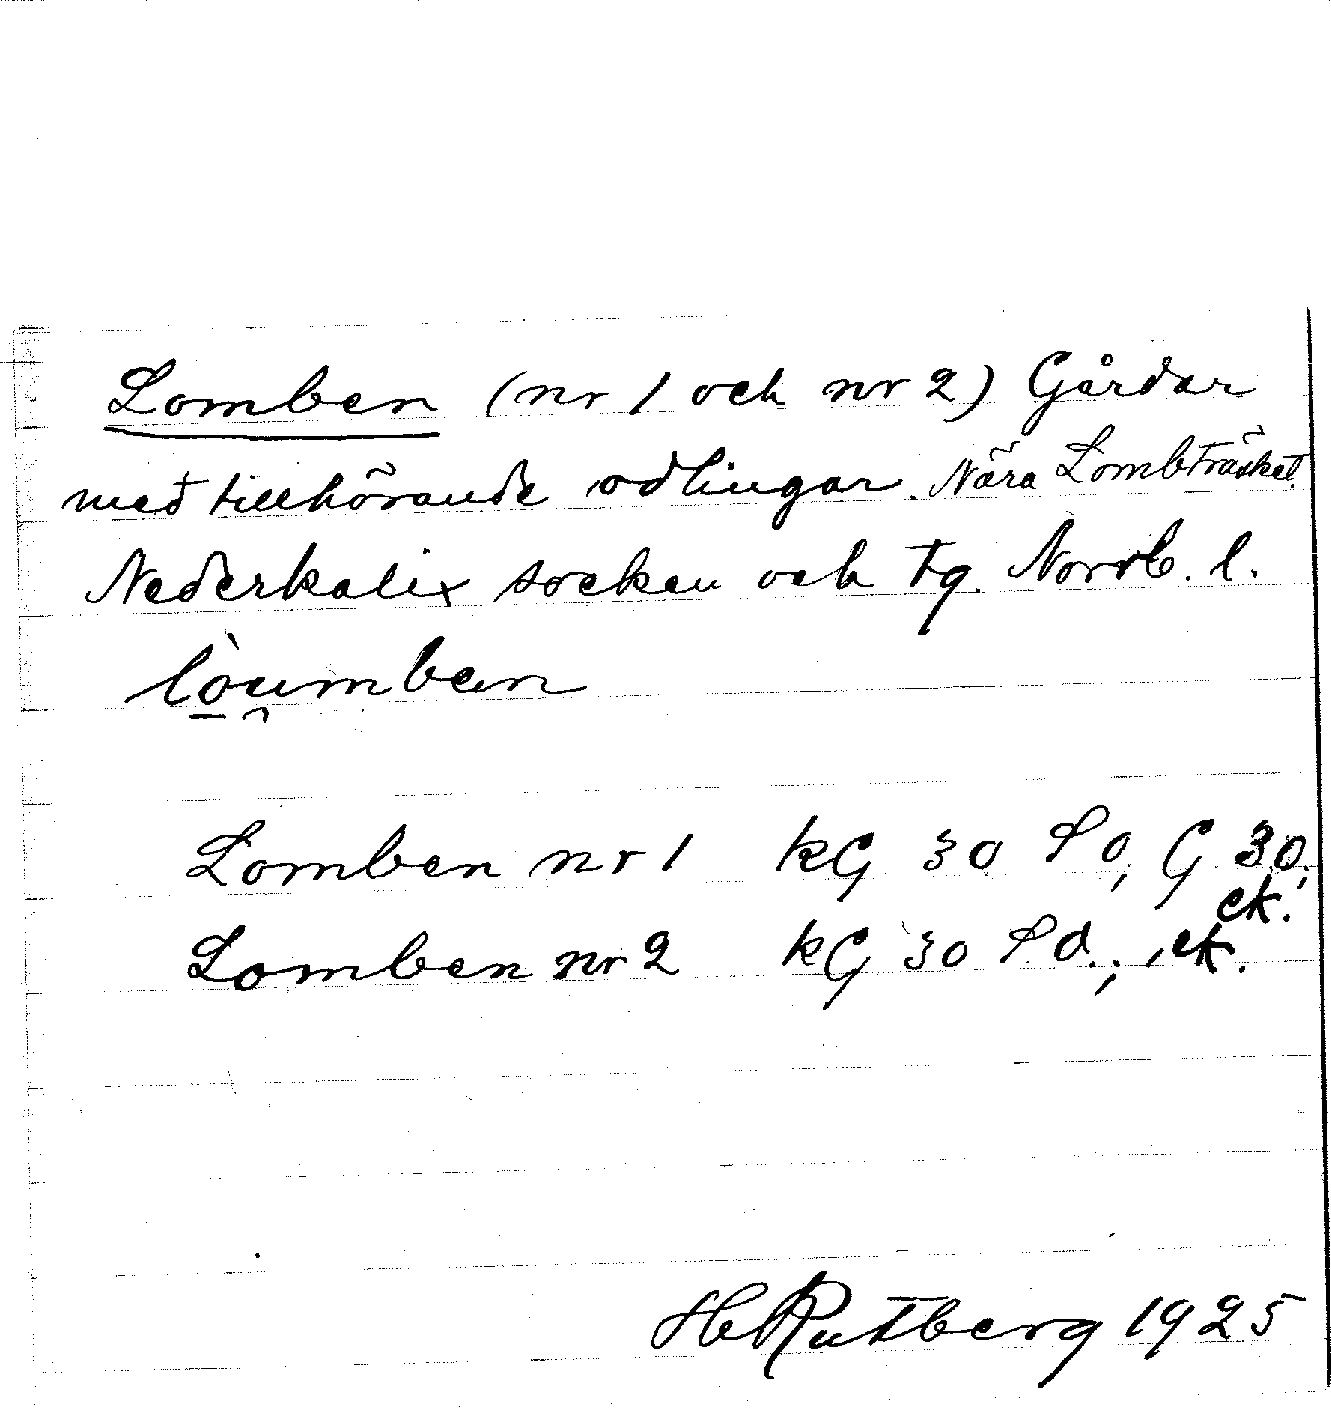 Lomben (nr 1 och nr 2) Gårdar
med tillhörande odlingar. Nära Lombträsket.
Nederkalix socken och tg. Norrb. l.
lòumban
Lomben nr 1 kG 30 SO, G 30;
ek.
Lomben nr 2 kG 30 SO.; ek.
H Rutberg 1925